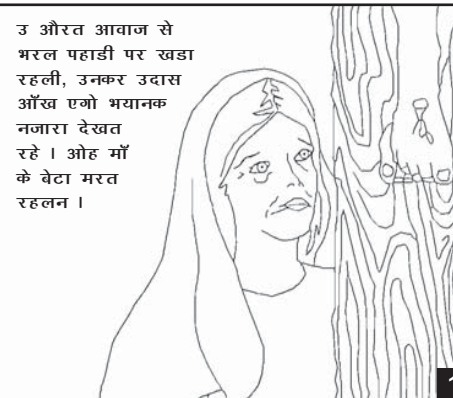 उ औरत आवाज से
भरल पहाडी पर खडा
रहली, उनकर उदास
आँख एगो भयानक
नजारा देखत
रहे । ओह माँ
के बेटा मरत
रहलन ।
1